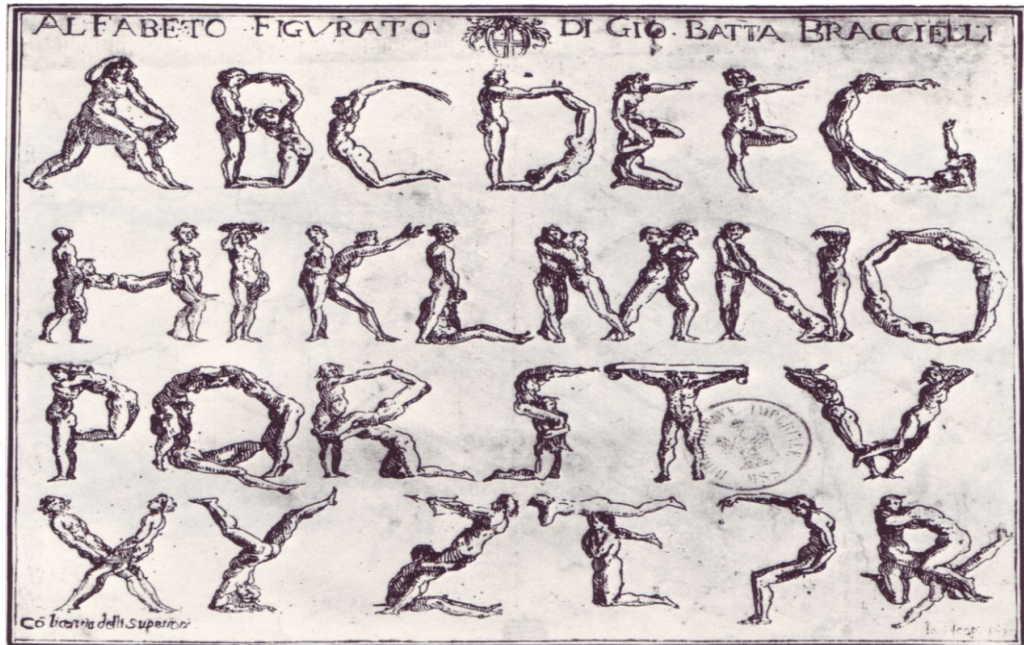 ALFABETO FIGVRATO DI GIO BATTA BRACCIELLI
A B C D E F G
H I K L M N O
P Q R S T V
X Y Z
Cō licentia delli superiori